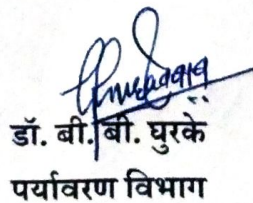 डॉ. बी. बी. घुरके
पर्यावरण विभाग